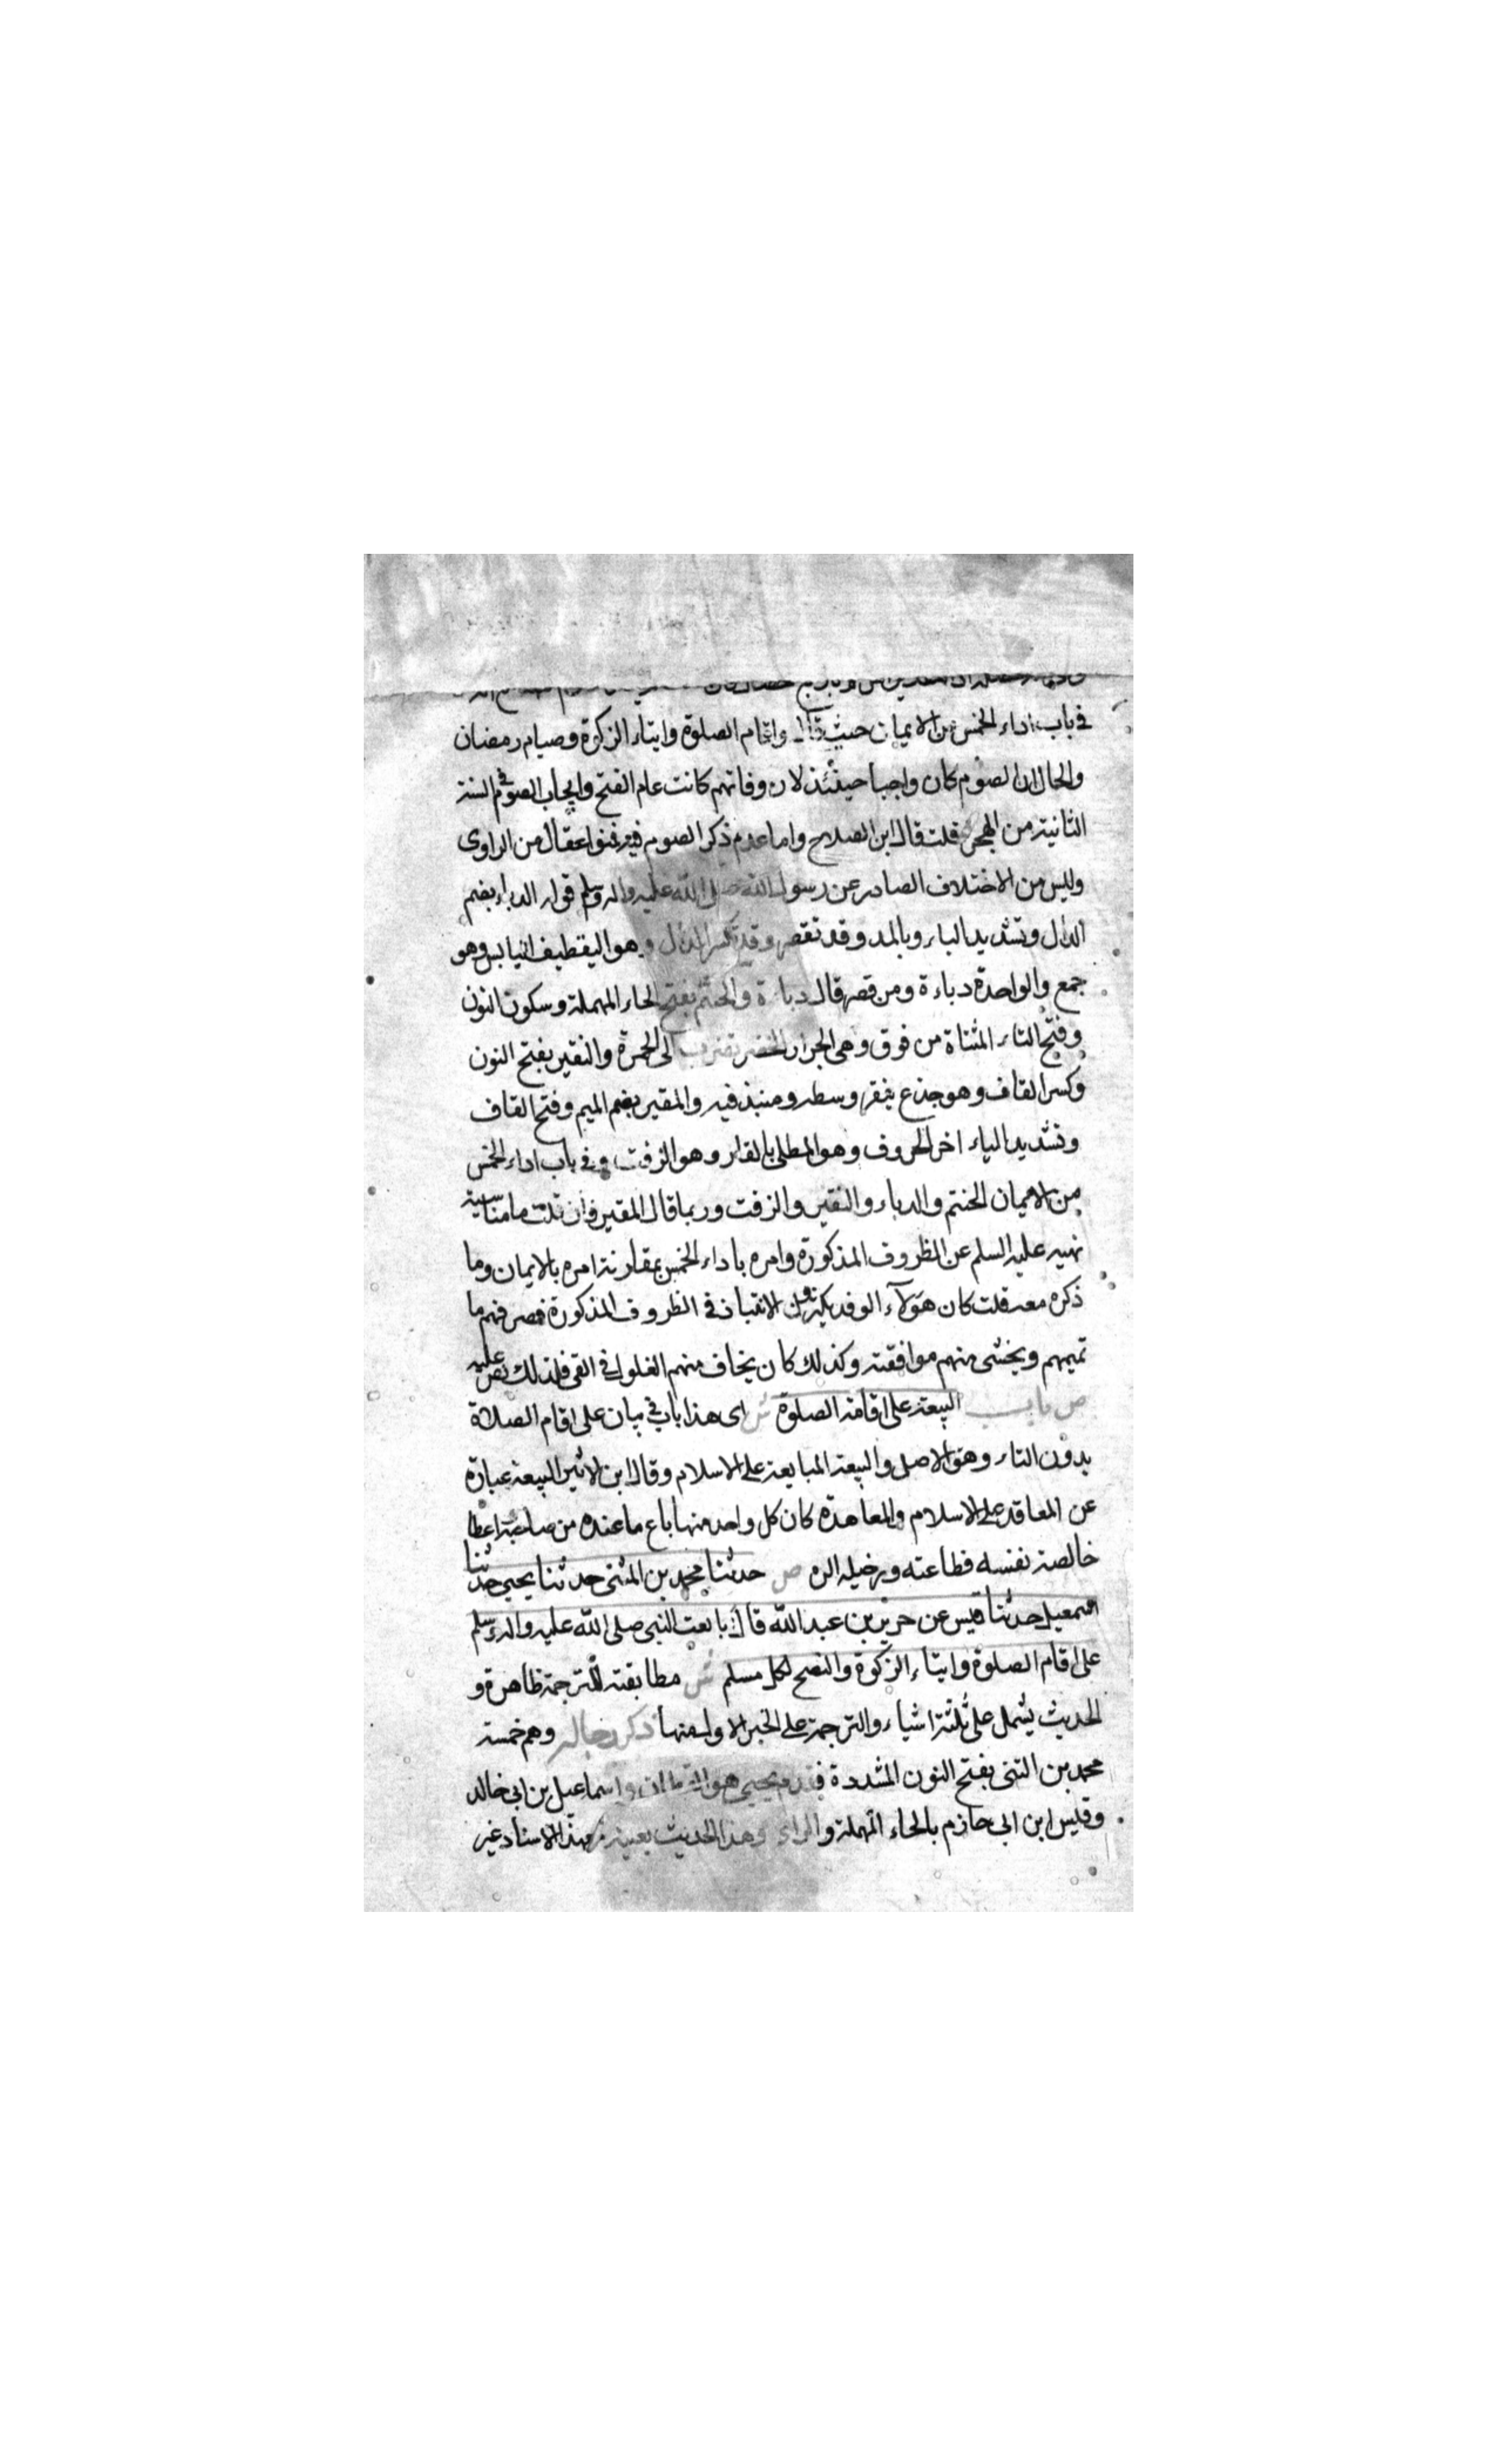 في باب اداء الخمس من الايمان حيث قال واقام الصلوة وايتاء الزكوة وصيام رمضان
والحال ان الصوم كان واجبا حينئذ لان وفاتهم كانت عام الفتح وايجاب الصوم في السنة
الثانية من الهجرة قلت قال ابن الصلاح واما عدم ذكر الصوم فيه فهو اغفال من الراوي
وليس من الاختلاف الصادر عن رسول الله صلى الله عليه واله وسلم قوله الدباء بضم
الدال وتشديد الباء وبالمد وقد تقصر وقد تكسر الدال وهو اليقطين اليابس وهو
جمع والواحدة دباءة ومن قصر قال دباة والحنتم بفتح الحاء المهملة وسكون النون
وفتح التاء المثناة من فوق وهي الجرار الخضر تضرب الى الحمرة والنقير بفتح النون
وكسر القاف وهو جذع ينقر وسطه ومنبذ فيه والمقير بضم الميم وفتح القاف
وتشديد الياء اخر الحروف وهو المطلى بالقار وهو الزفت وفي باب اداء الخمس
من الايمان الحنتم والدباء والنقير والزفت وربما قال المقير فان قلت ما مناسبة
نهيه عليه السلم عن الظروف المذكورة وامره باداء الخمس بمقارنة امره بالايمان وما
ذكره معه قلت كان هؤلاء الوفد يكثرون الانتباذ في الظروف المذكورة فعرفهم ما
تميهم ويخشى منهم موافقته وكذلك كان يخاف منهم الغلول في الفي فلذلك نص عليه
ص باب البيعة على اقامة الصلوة ش اى هذا باب في بيان على اقام الصلاة
بدون التاء وهو الاصل والبيعة المبايعة على الاسلام وقال ابن الاثير البيعة عبارة
عن المعاقد على الاسلام والمعاهدة كان كل واحد منها باع ما عنده من صاحبه اعطا
خالصة نفسه فطاعته ودخيله امره ص حدثنا محمد بن المثنى حدثنا يحيى حدثنا
اسمعيل حدثنا قيس عن جرير بن عبد الله قال بايعت النبي صلى الله عليه واله وسلم
على اقام الصلوة وايتاء الزكوة والنصح لكل مسلم ش مطابقته للترجمة ظاهرة و
الحديث يشمل على ثلثة اشياء والترجمة على الجزء الاول منها ذكر رجاله وهم خمسة
محمد بن المثنى بفتح النون المشددة يحيى هو القطان واسماعيل بن ابي خالد
وقيس ابن ابي حازم بالحاء المهملة والزاى وهذا الحديث بعينه بهذا الاسناد غير